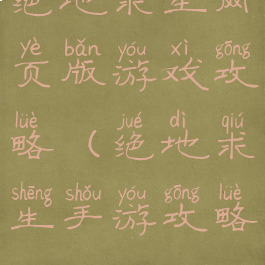 绝地求生减
yè bǎn yóu xì gōng
页版游戏攻
lüè jué dì qiú
略(绝地求
shēng shǒu yóu gōng lüè
生手游攻略